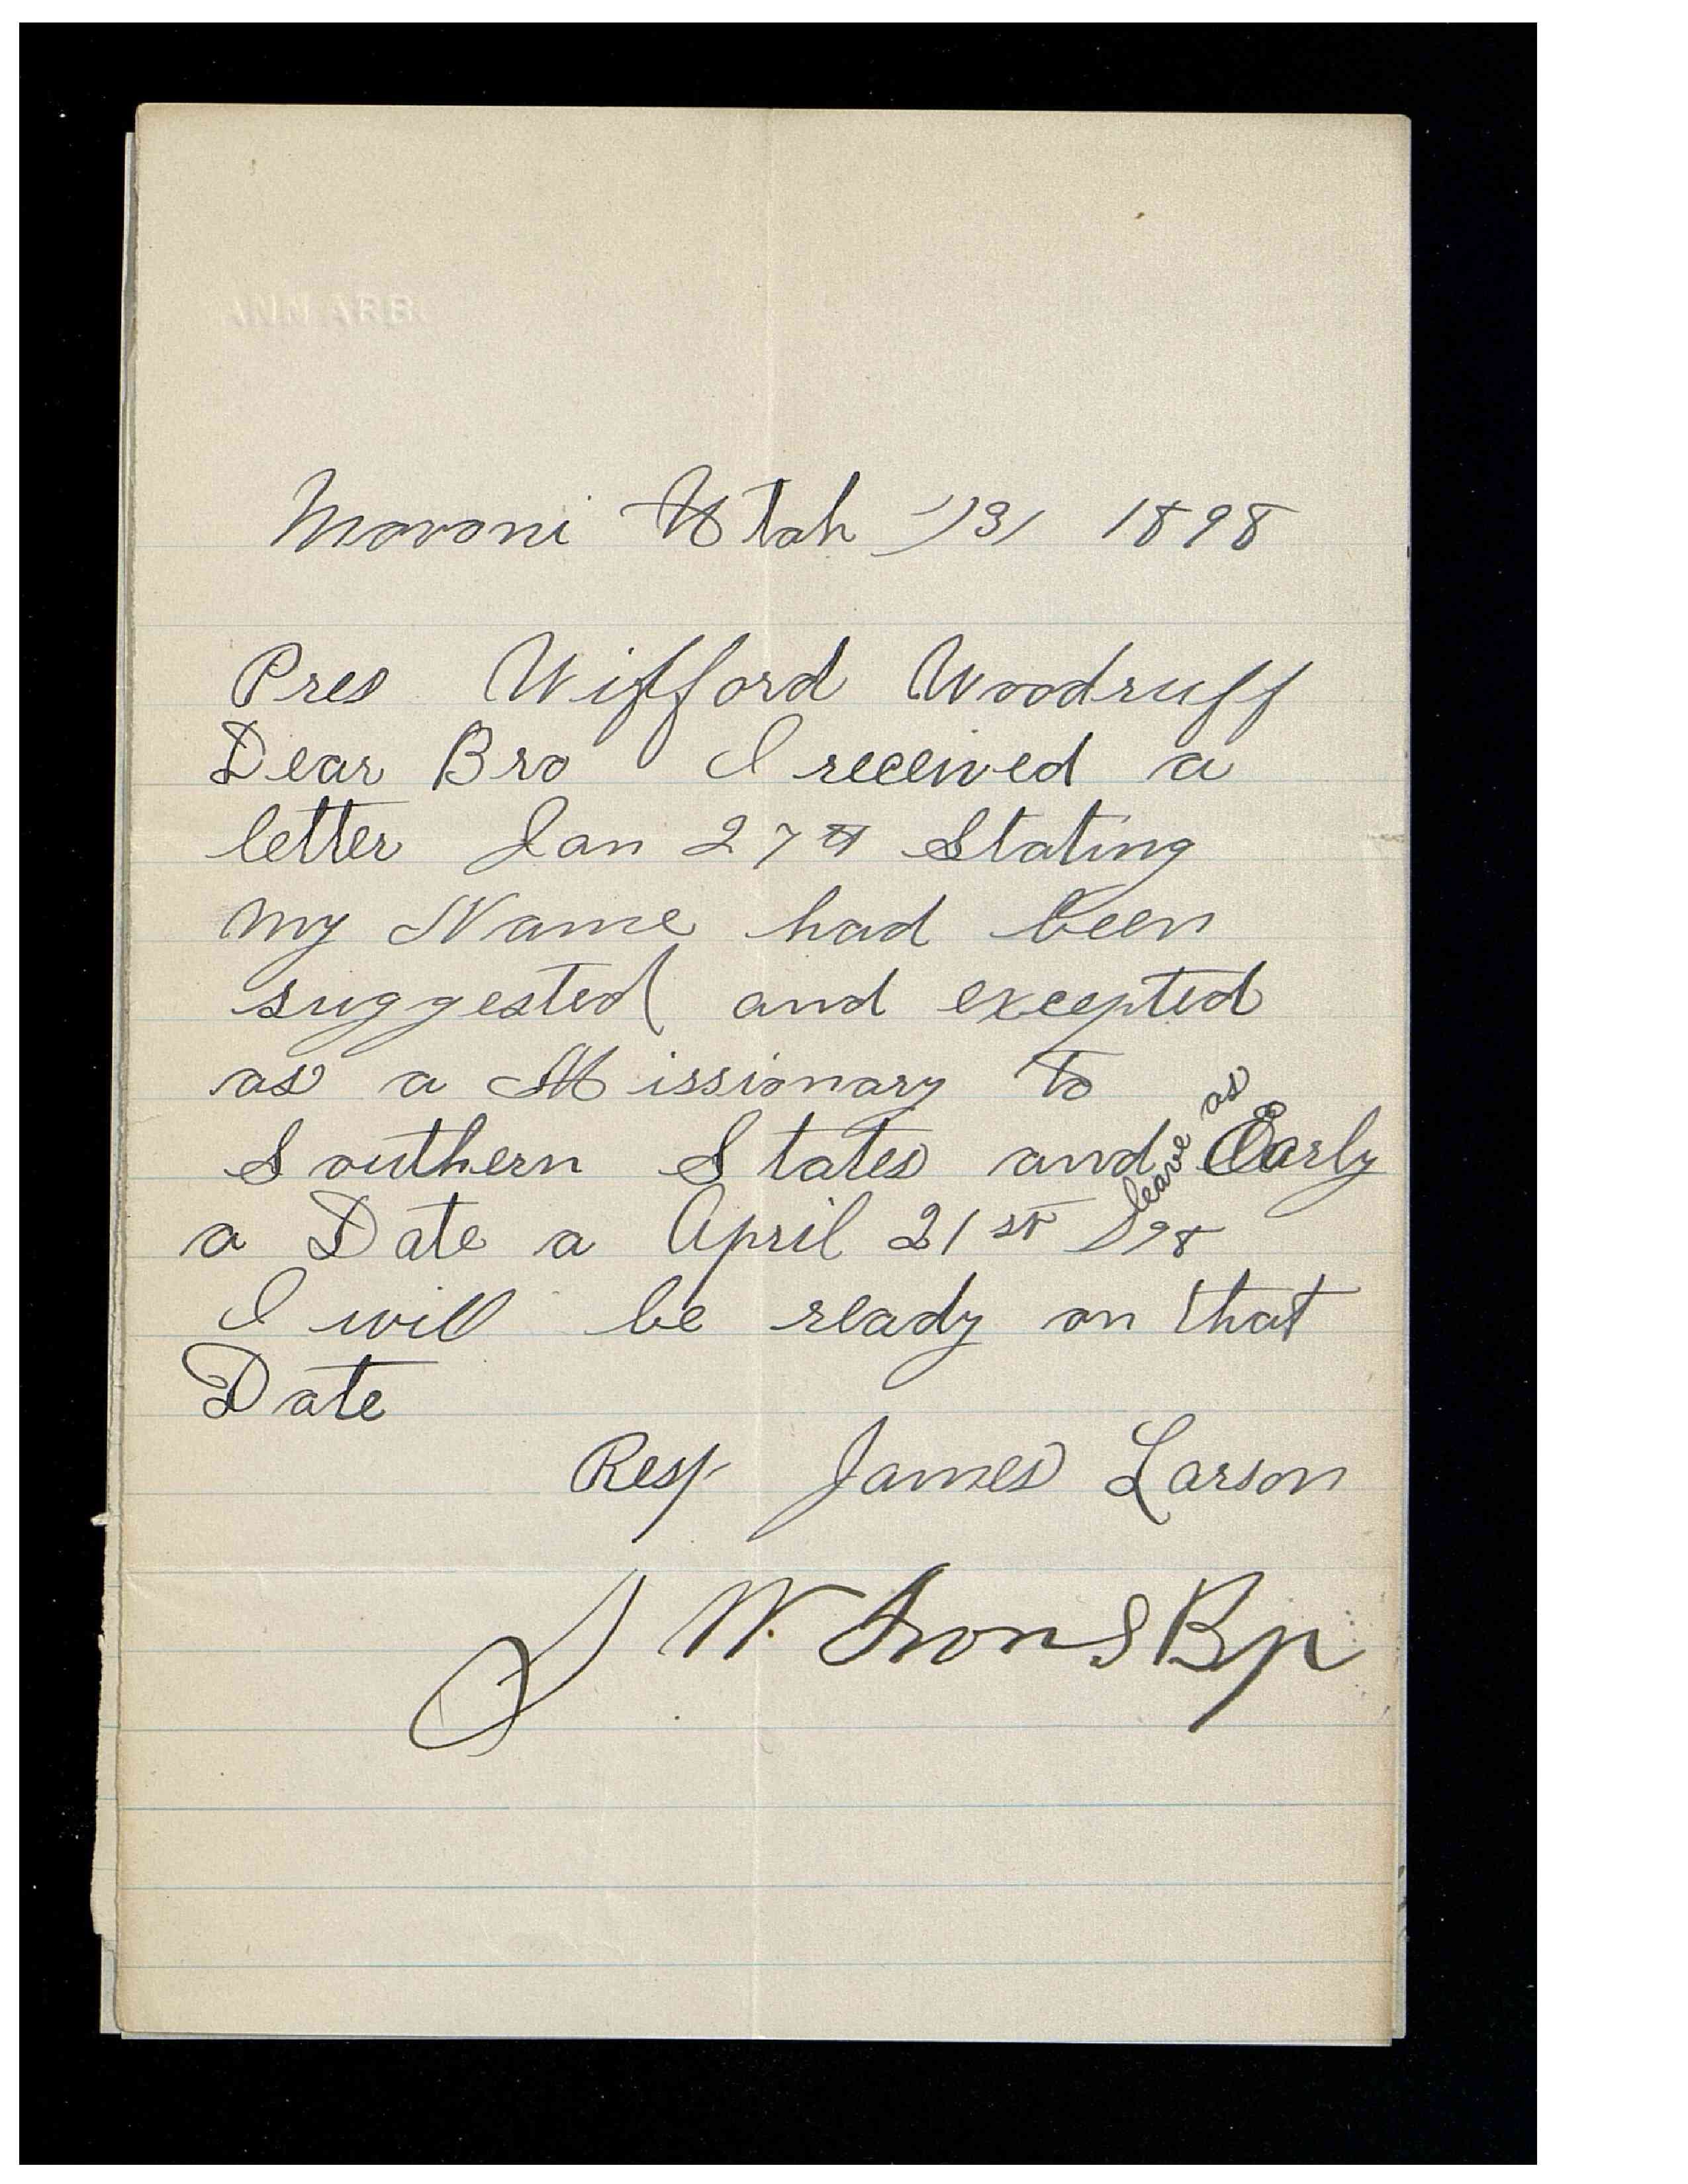 ANN ARB
Moroni Utah 1/31 1898
Pres Wifford Woodruff
Dear Bro I received a
letter Jan 27th Stating
my Name had been
suggested and excepted
as a Missionary to
Southern States and leave as Early
a Date a April 21st 98
I will be ready on that
Date
Resp James Larson
J W Irons Bp